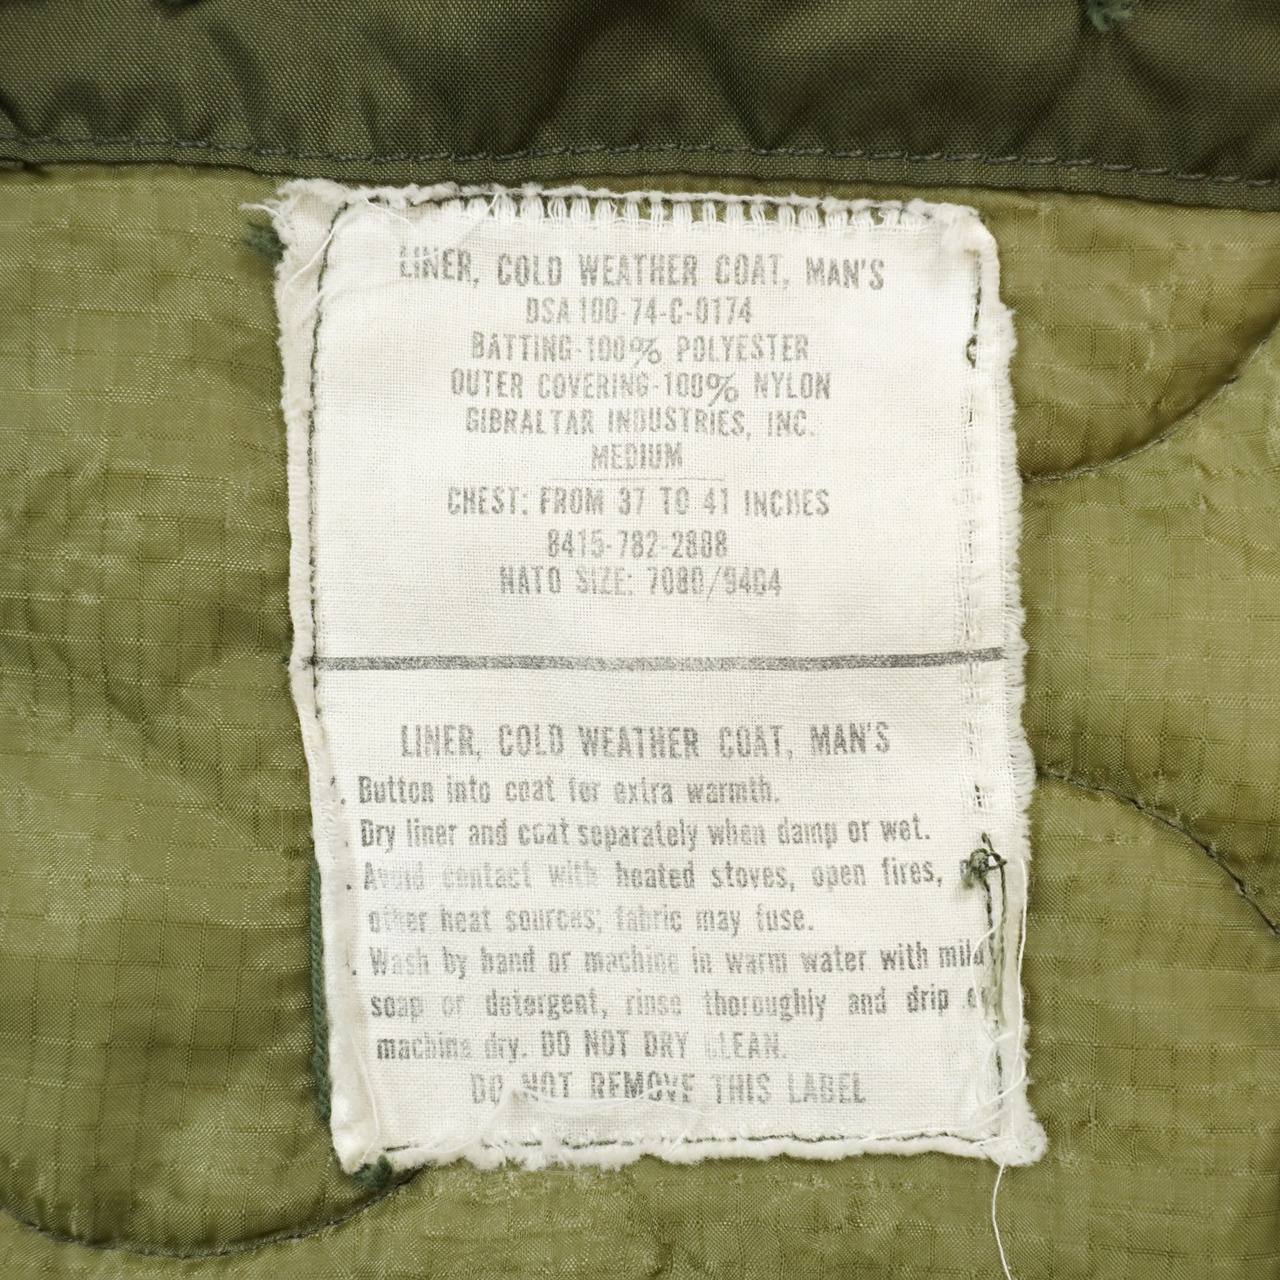 LINER, COLD WEATHER COAT, MAN'S
DSA 100-74-C-0174
BATTING-100% POLYESTER
OUTER COVERING-100% NYLON
GIBRALTAR INDUSTRIES, INC.
MEDIUM
CHEST: FROM 37 TO 41 INCHES
8415-782-2888
NATO SIZE: 7080/9404
LINER, COLD WEATHER COAT, MAN'S
1. Button into coat for extra warmth.
. Dry liner and coat separately when damp or wet.
. Avoid contact with heated stoves, open fires,
other heat sources; fabric may fuse.
. Wash by hand or machine in warm water with mild
soap or detergent, rinse thoroughly and drip or
machine dry. DO NOT DRY CLEAN.
DO NOT REMOVE THIS LABEL